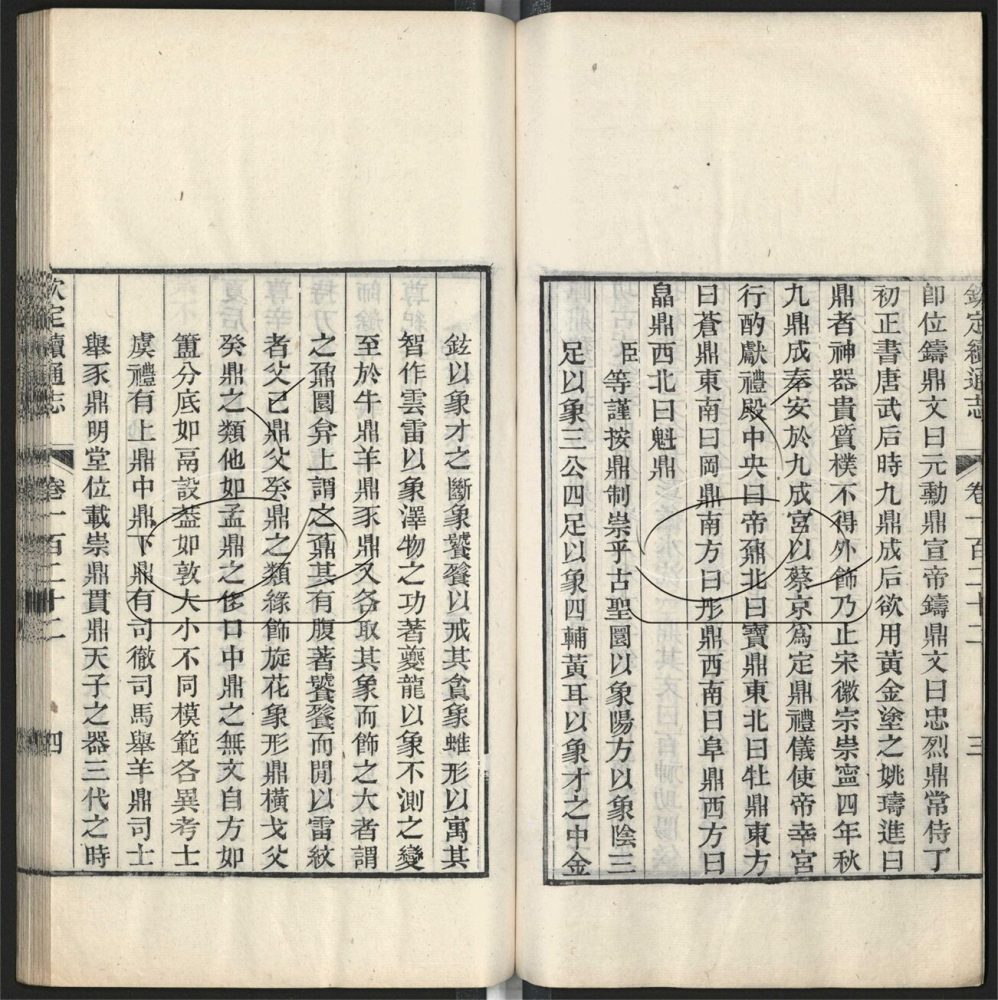 欽定續通志 卷一百二十二 三
卽位鑄鼎文曰元勳鼎宣帝鑄鼎文曰忠烈鼎常侍丁
初正書唐武后時九鼎成后欲用黃金塗之姚璹進曰
鼎者神器貴質樸不得外飾乃止宋徽宗崇寧四年秋
九鼎成奉安於九成宮以蔡京爲定鼎禮儀使帝幸宮
行酌獻禮殿中央曰帝鼐北曰寶鼎東北曰牡鼎東方
曰蒼鼎東南曰岡鼎南方曰彤鼎西南曰阜鼎西方曰
皛鼎西北曰魁鼎
臣等謹按鼎制崇乎古聖圜以象陽方以象陰三
足以象三公四足以象四輔黃耳以象才之中金
鉉以象才之斷象饕餮以戒其貪象蜼形以寓其
智作雲雷以象澤物之功著夔龍以象不測之變
至於牛鼎羊鼎豕鼎又各取其象而飾之大者謂
之鼐圜弇上謂之鼒其有腹著饕餮而閒以雷紋
者父己鼎父癸鼎之類緣飾旋花象形鼎橫戈父
癸鼎之類他如孟鼎之侈口中鼎之無文自方如
簠分底如鬲設蓋如敦大小不同模範各異考士
虞禮有上鼎中鼎下鼎有司徹司馬舉羊鼎司士
舉豕鼎明堂位載崇鼎貫鼎天子之器三代之時
欽定續通志 卷一百二十二 四